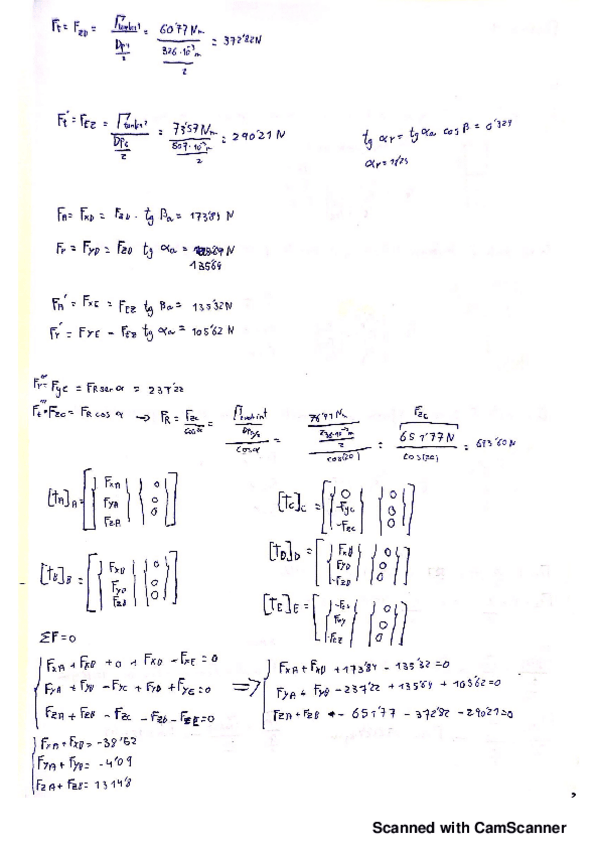 Ft = FZD = Γtanks1 / (Dp4/2) = 60'77 Nm / (326·10⁻³m/2) = 372'82N
Ft' = FEZ = Γtanks2 / (Dp6/2) = 73'57 Nm / (507·10⁻³m/2) = 290'21 N
tg αr = tg αa cos β = 0'329
FA = FXD = FZD · tg βa = 173'84 N
Fr = FYD = FZD tg αa = N
135'69
FA' = FXE = FEZ tg βa = 135'32N
Fr' = FYE = FEZ tg αa = 105'62 N
Fr'' = FYC = FR sen α = 237'22
Ft'' = FZC = FR cos α → FR = FZC / cos α = / cos α = 76'91 Nm / (236·10⁻³m/2) / cos(20) = 651'77N / cos(20) = 693'60N
FZC
[tA]A = [{FXA FYA FZA} {0 0 0}]
[tC]C = [{0 -FYC -FZC} {0 0 0}]
[tB]B = [{FXB FYB FZB} {0 0 0}]
[tD]D = [{FXD FYD -FZD} {0 0 0}]
[tE]E = {0 0 0}]
ΣF=0
FXA + FXB + 0 + FXD - FXE = 0
FYA + FYB - FYC + FYD + FYE = 0
FZA + FZB - FZC - FZD - FZE = 0
⇒ FXA + FXB + 173'84 - 135'32 = 0
FYA + FYB - 237'22 + 135'69 + 105'62 = 0
FZA + FZB - 651'77 - 372'82 - 290'21 = 0
FXA + FXB = -38'52
FYA + FYB = -4'09
FZA + FZB = 1314'8
Scanned with CamScanner